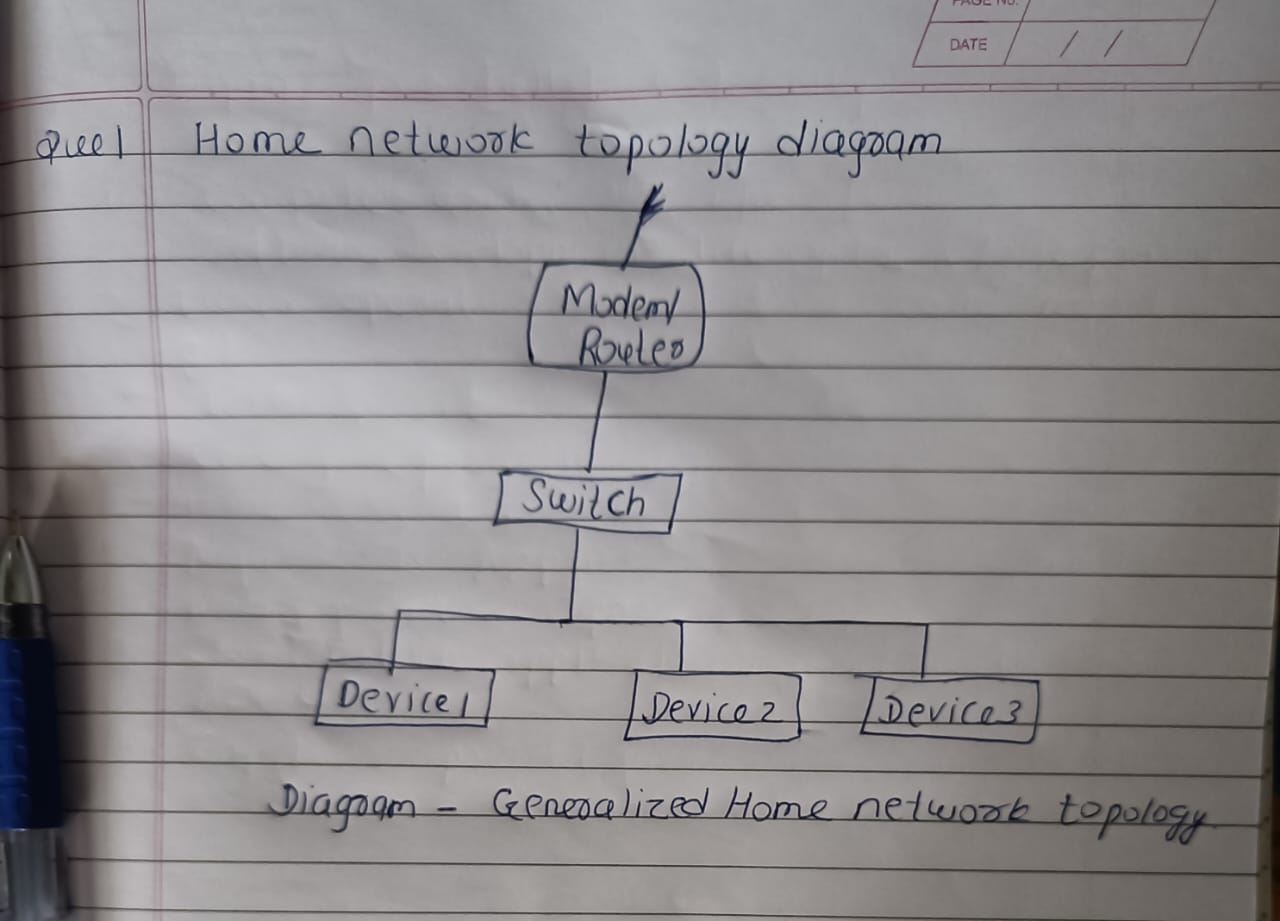 PAGE NO.
DATE / /
Que 1 Home network topology diagram
Modem/
Router
Switch
Device1 Device2 Device3
Diagram - Generalized Home network topology